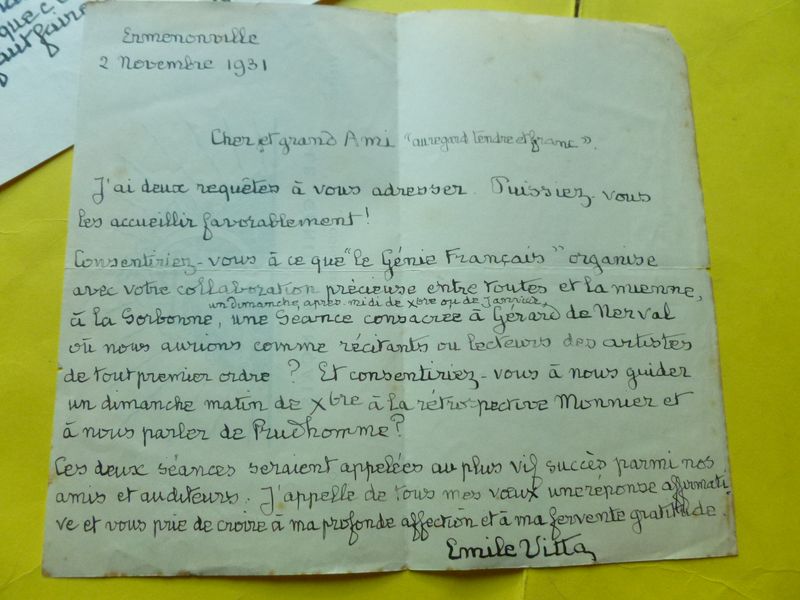 que c
faut faire
Ermenonville
2 Novembre 1931
Cher et grand Ami "au regard tendre et franc".
J'ai deux requêtes à vous adresser. Puissiez-vous
les accueillir favorablement!
Consentiriez-vous à ce que "le Génie Français" organise
avec votre collaboration précieuse entre toutes et la mienne,
un dimanche, après-midi de Xbre ou de Janvier,
à la Sorbonne, une Séance consacrée à Gérard de Nerval
où nous aurions comme récitants ou lecteurs des artistes
de tout premier ordre ? Et consentiriez-vous à nous guider
un dimanche matin de Xbre à la rétrospective Monnier et
à nous parler de Prudhomme?
Ces deux séances seraient appelées au plus vif succès parmi nos
amis et auditeurs. J'appelle de tous mes vœux une réponse affirmati-
ve et vous prie de croire à ma profonde affection et à ma fervente gratitude.
Emile Vitta